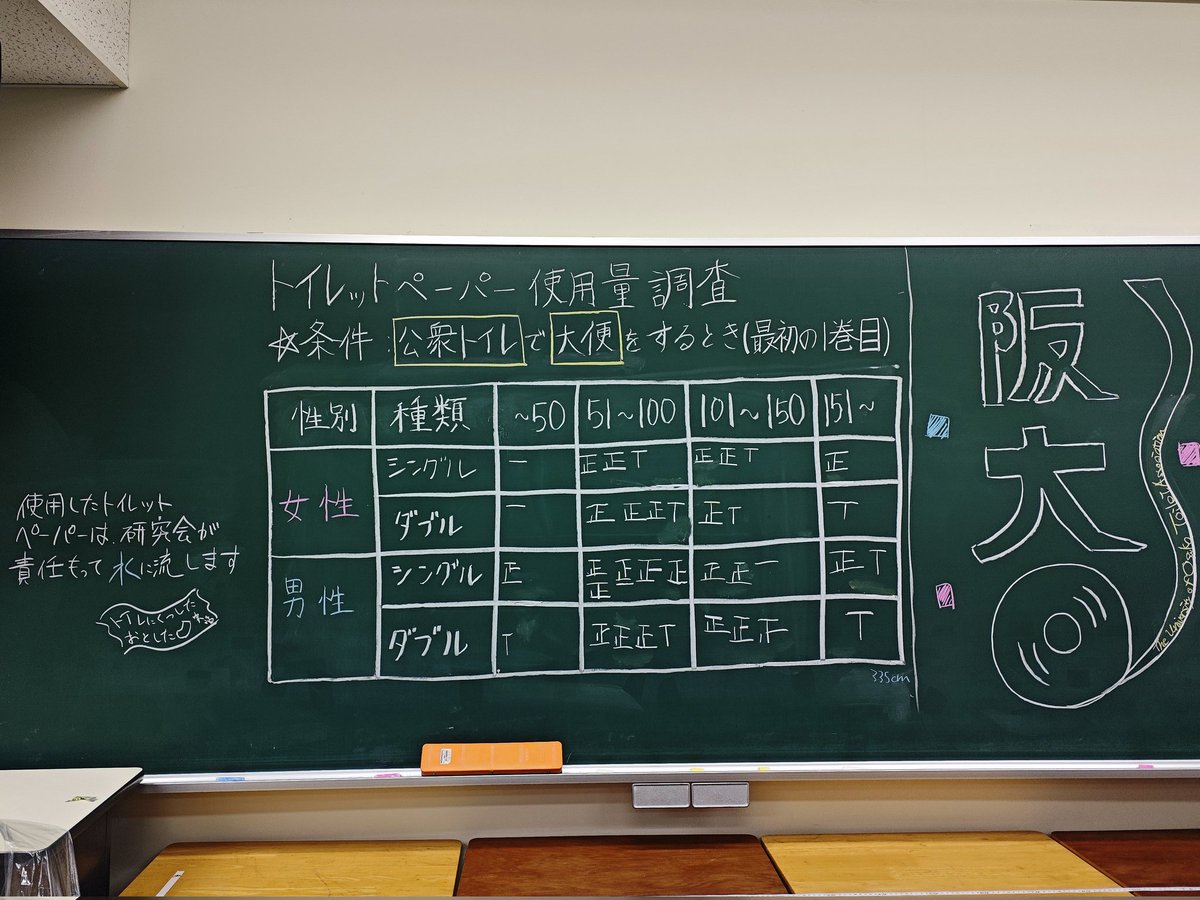 トイレットペーパー使用量調査
☆条件:公衆トイレで大便をするとき(最初の1巻目)
性別 種類 ~50 51~100 101~150 151~
女性 シングル 一 正正T 正正T 正
ダブル 一 正正正T 正T T
男性 シングル 正 正正正正正 正正一 正T
ダブル T 正正正T 正正正 T
335cm
使用したトイレット
ペーパーは、研究会が
責任もって水に流します
トイレにくつした
おとした
阪大
The University of Osaka Toilet Association